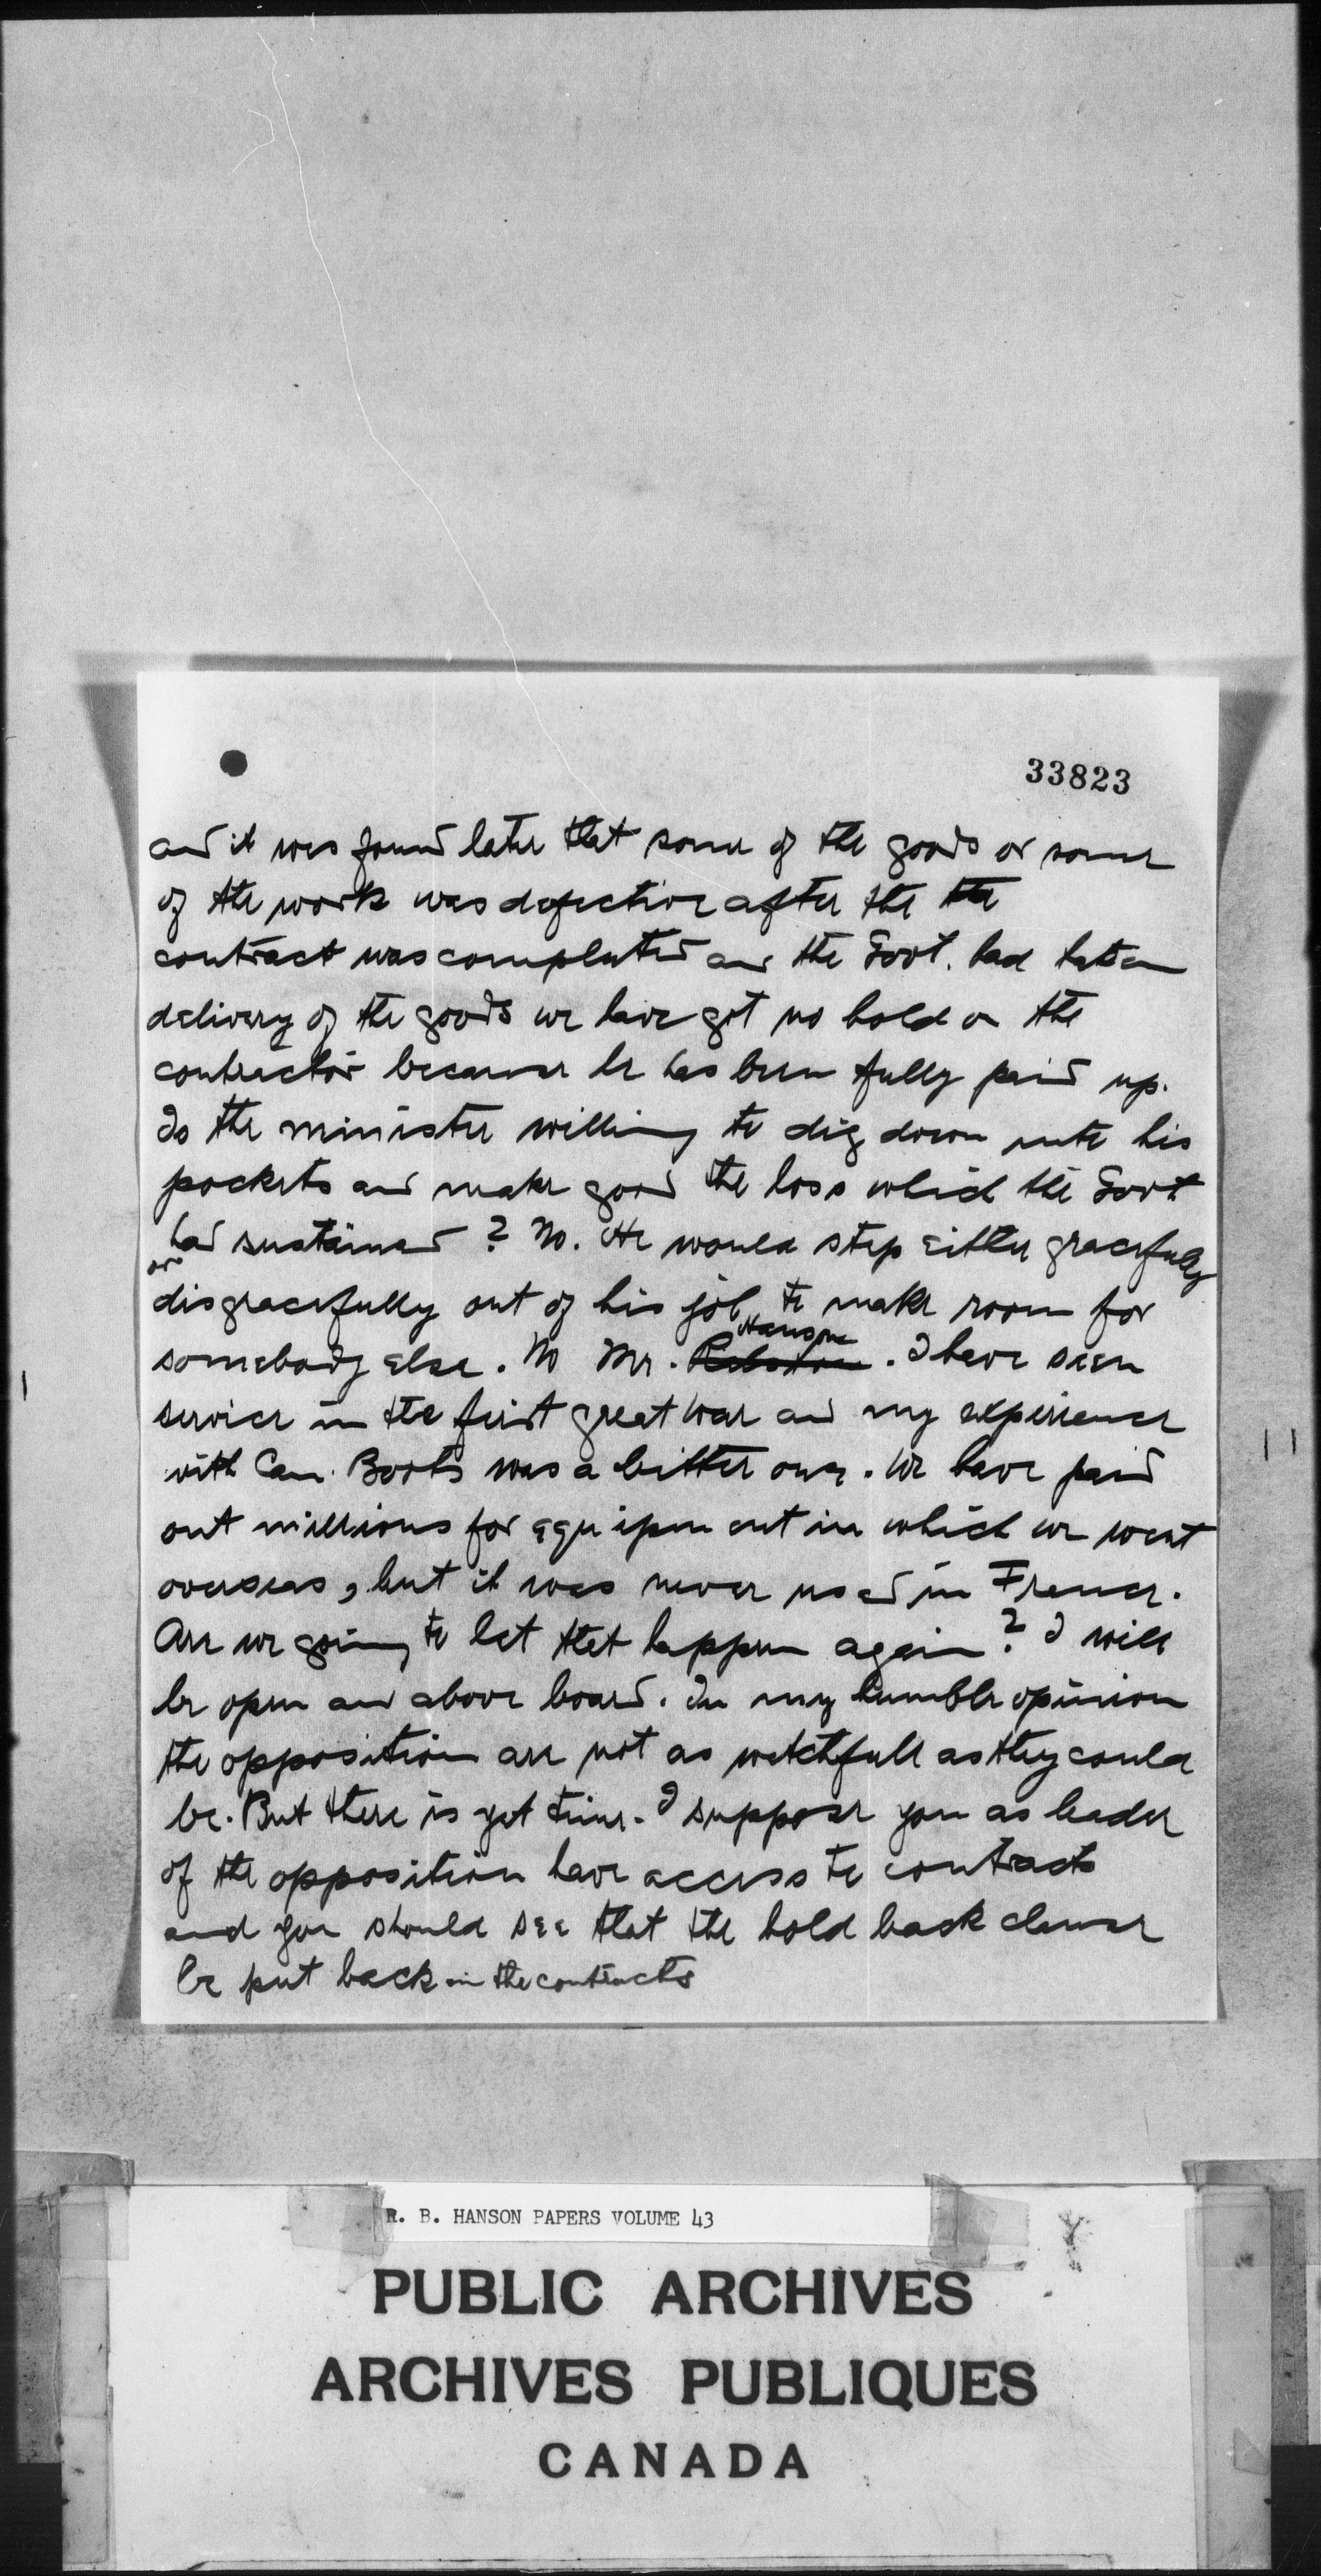 33823
and it was found later that some of the goods or some
of the work was defective after the the
contract was completed and the Govt. had taken
delivery of the goods we have got no hold on the
contractor because he has been fully paid up.
Is the minister willing to dig down into his
pockets and make good the loss which the Govt
had sustained? No. He would step either gracefully
or
disgracefully out of his job to make room for
Hanson
somebody else. No Mr. . I have seen
service in the first great war and my experience
with Can. Boots was a bitter one. We have paid
out millions for equipment in which we went
overseas, but it was never used in France.
Are we going to let that happen again? I will
be open and above board. In my humble opinion
the opposition are not as watchfull as they could
be. But there is yet time. I suppose you as leader
of the opposition have access to contracts
and you should see that the hold back clause
be put back in the contracts
R. B. HANSON PAPERS VOLUME 43
PUBLIC ARCHIVES
ARCHIVES PUBLIQUES
CANADA